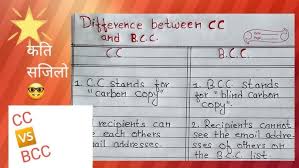 Difference between CC
and B.C.C.
केति
सजिलो
CC
VS
BCC
CC
1. C.C stands for
"carbon copy"
recipients can
each others
email addresses.
B.C.C.
1. BCC stands
for "blind carbon
copy".
2. Recipients cannot
see the email addre-
sses of others on
the B.C.C list